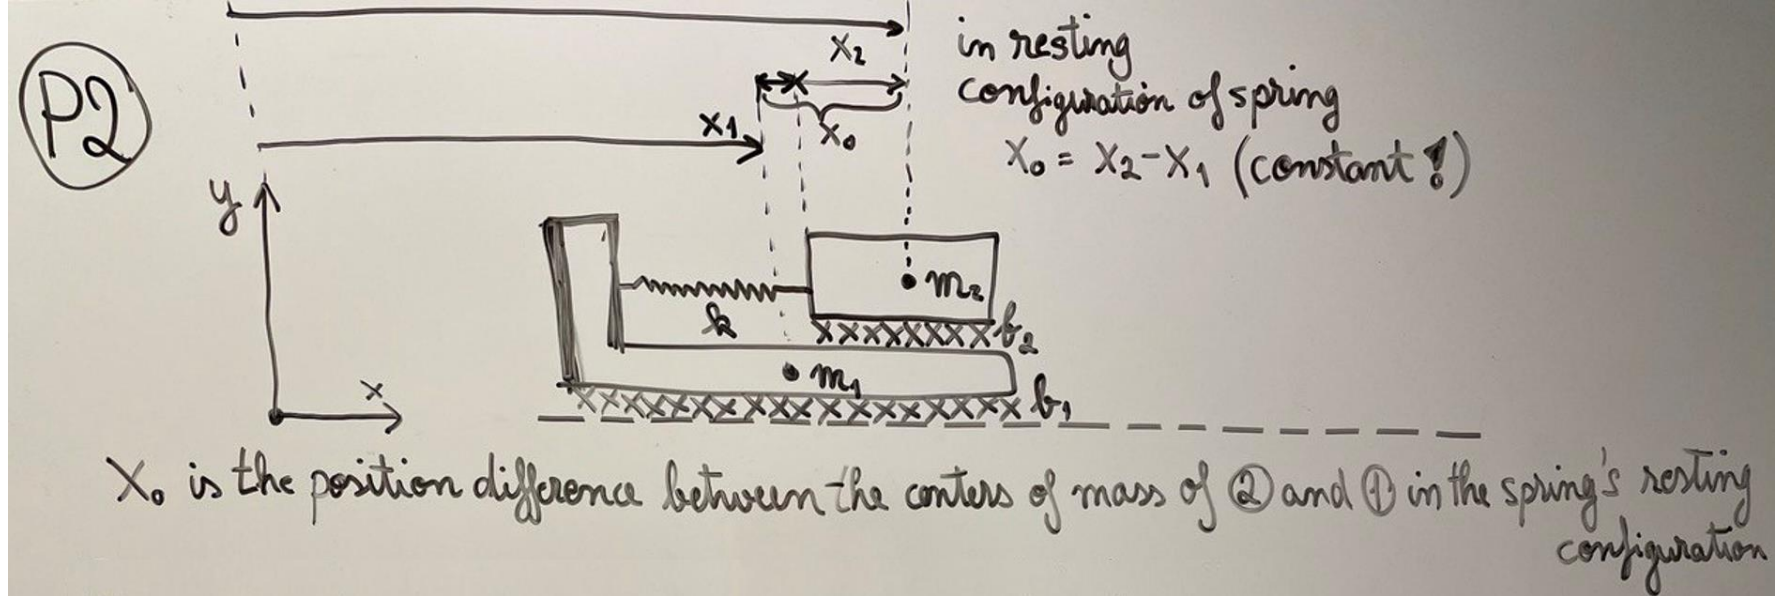 P2
X₂
in resting
configuration of spring
X₀ = X₂-X₁ (constant!)
X₁
X₀
y
m₂
k
b₂
m₁
x
b₁
X₀ is the position difference between the centers of mass of ② and ① in the spring's resting
configuration